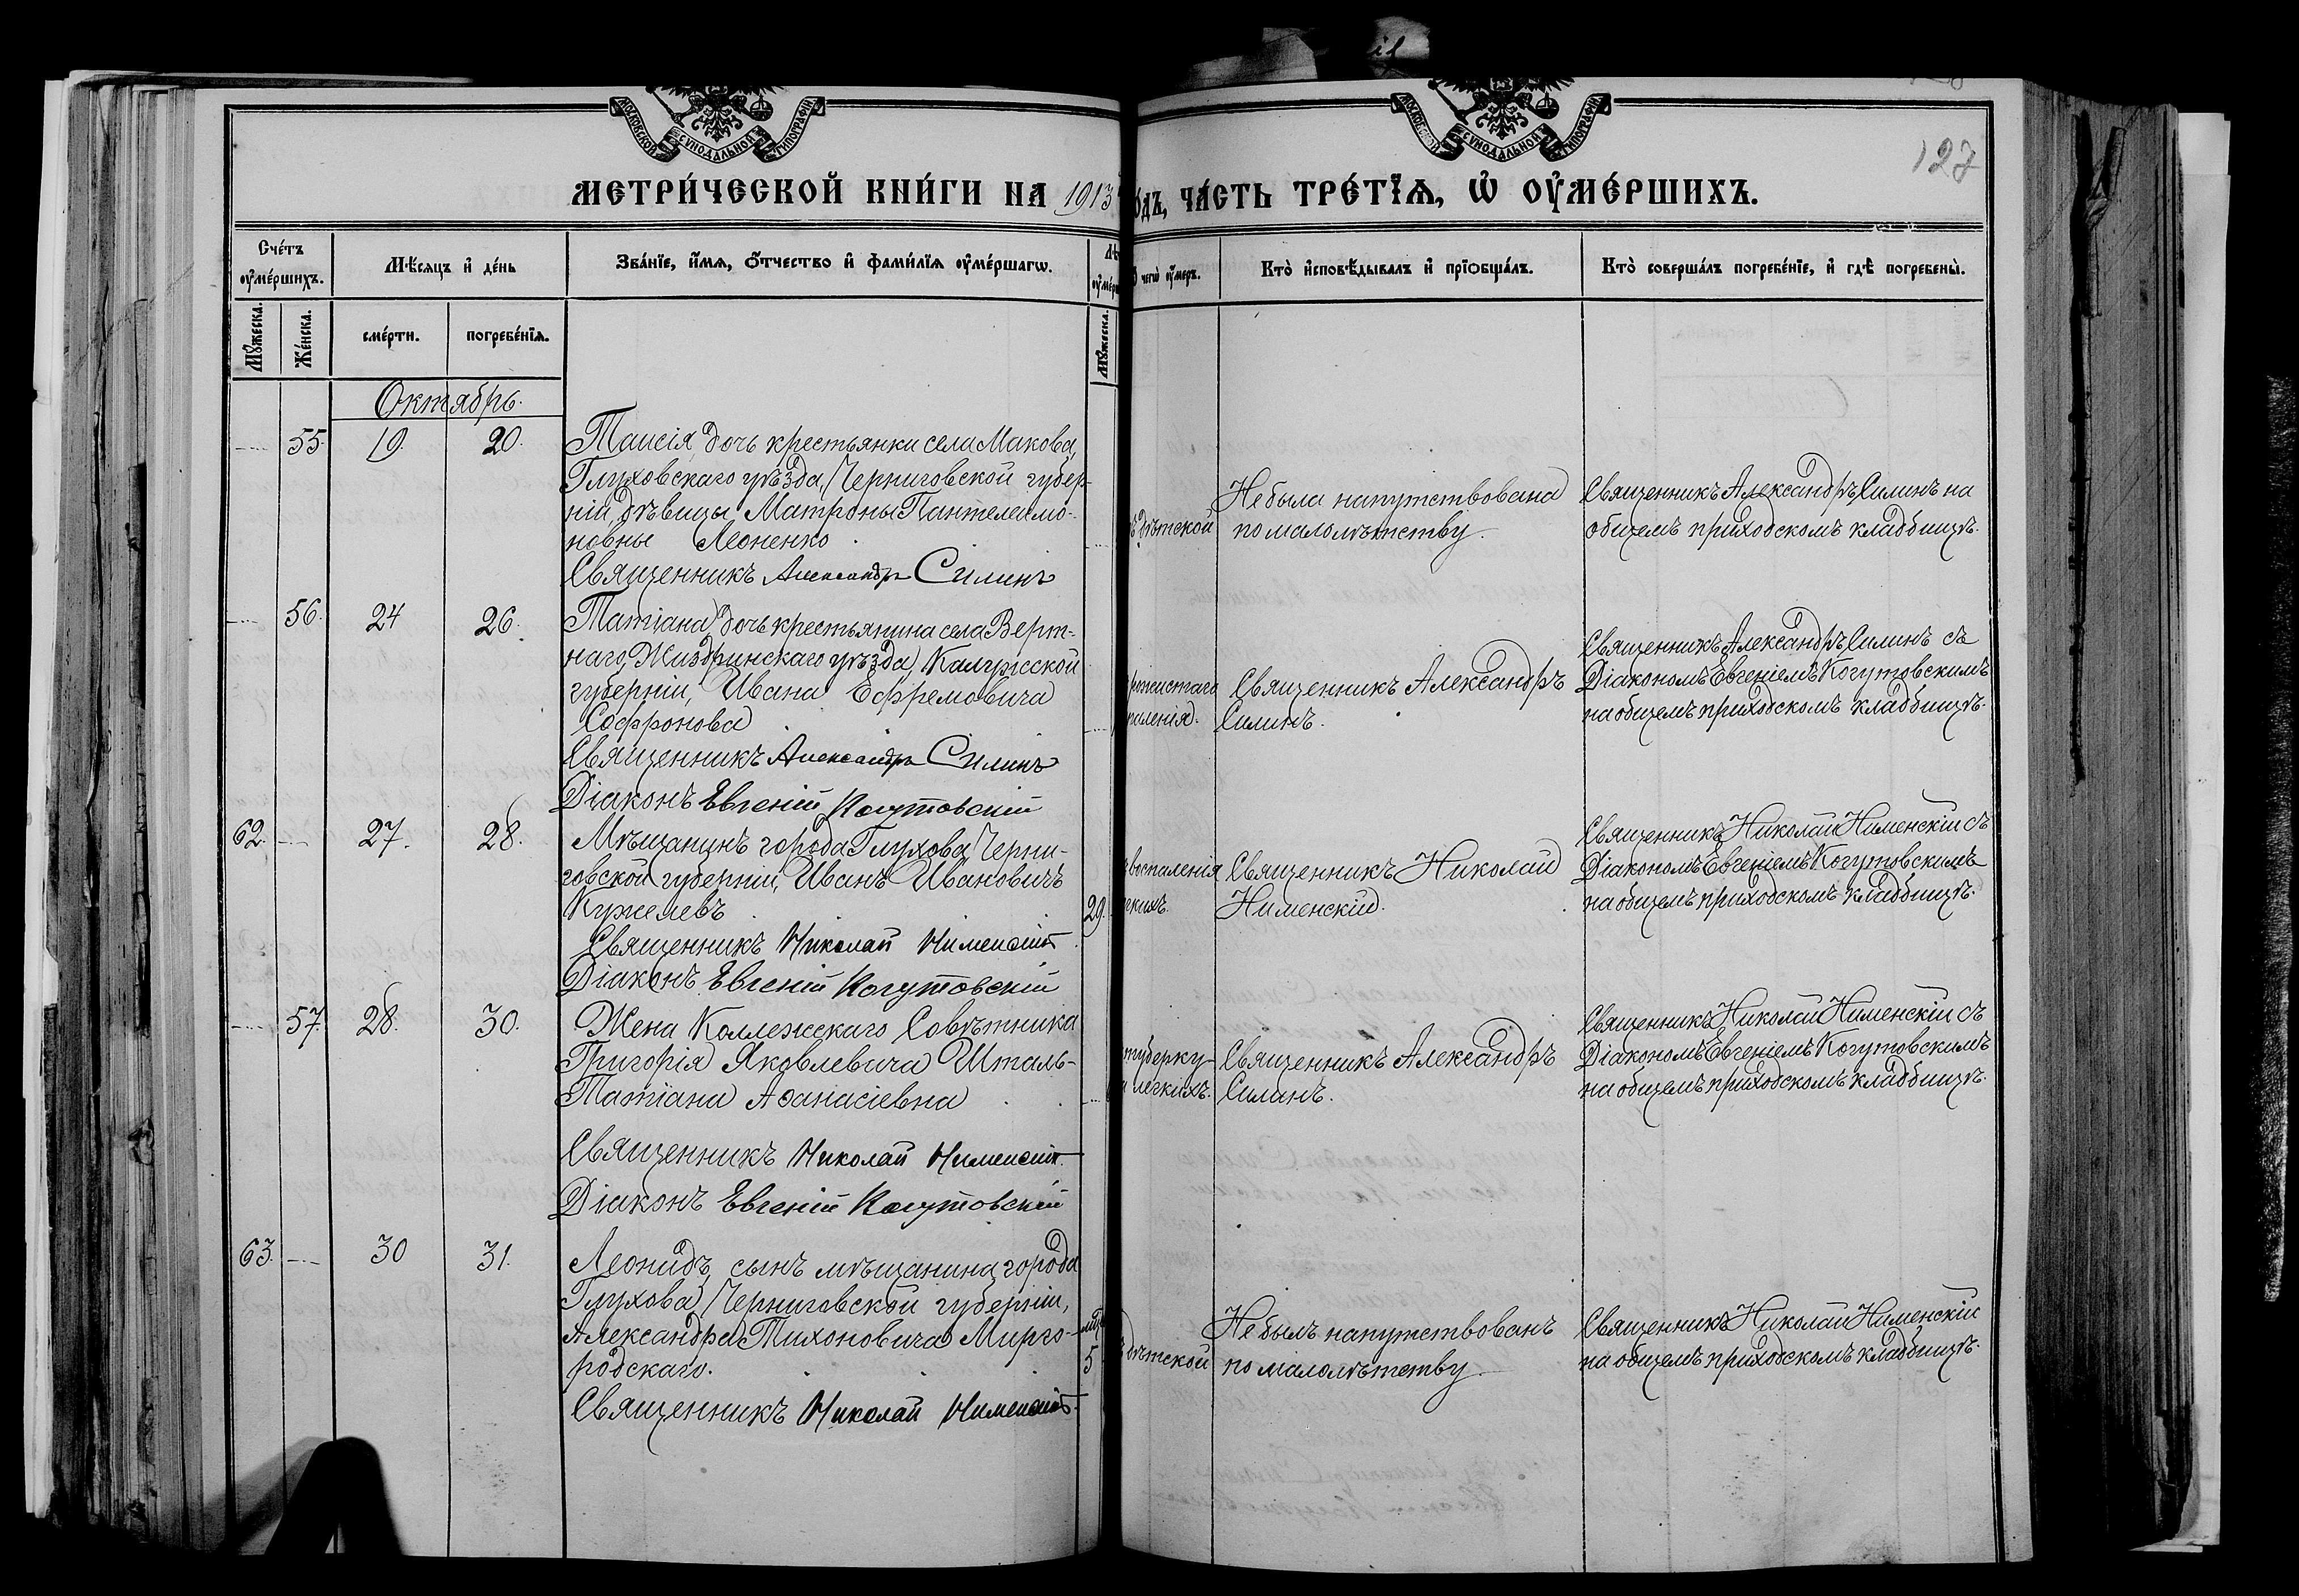 МОСКОВСКОЙ СѴНОДАЛЬНОЙ ТИПОГРАФІИ
МОСКОВСКОЙ СѴНОДАЛЬНОЙ ТИПОГРАФІИ
127
МЕТРИ́ЧЕСКОЙ КНИ́ГИ НА 1913
о́дъ, ЧА́СТЬ ТРЕ́ТЇѦ, Ѡ҆ ОУ҆МЕ́РШИХЪ.
Сче́тъ оу҆ме́ршихъ.
Мѣ́сѧцъ и҆ де́нь
Зва́нїе, и҆́мѧ, ѻ҆́тчество и҆ фами́лїѧ оу҆ме́ршагѡ.
чегѡ̀ оу҆́меръ.
Кто̀ и҆сповѣ́дывалъ и҆ прїѻбща́лъ.
Кто̀ соверша́лъ погребе́нїе, и҆ гдѣ̀ погребены̀.
Мꙋ́жеска.
Же́нска.
сме́рти.
погребе́нїѧ.
Мꙋ́жеска.
Октябрь.
55. 19. 20. Таисія, дочь крестьянки села Макова,
Глуховскаго уѣзда, Черниговской губер-
ніи, дѣвицы Матроны Пантелеимо-
новны Леоненко
Священникъ Александръ Силинъ
дѣтской
Не была напутствована
по малолѣтству.
Священникъ Александръ Силинъ на
общемъ приходскомъ кладбищѣ.
56. 24 26. Татіана, дочь крестьянина села Верт-
наго, Жиздринскаго уѣзда, Калужской
губерніи, Ивана Ефремовича
Софронова
Священникъ Александръ Силинъ
Діаконъ Евгеній Когутовскій
паленія.
Священникъ Александръ
Силинъ.
Священникъ Александръ Силинъ съ
Діакономъ Евгеніемъ Когутовскимъ
на общемъ приходскомъ кладбищѣ.
62. 27. 28. Мѣщанинъ города Глухова, Черни-
говской губерніи, Иванъ Ивановичъ
Кужелевъ 29.
Священникъ Николай Нименскій
Діаконъ Евгеній Когутовскій
воспаленія
гкихъ.
Священникъ Николай
Нименскій.
Священникъ Николай Нименскій съ
Діакономъ Евгеніемъ Когутовскимъ
на общемъ приходскомъ кладбищѣ.
57. 28. 30. Жена Коллежскаго Совѣтника
Григорія Яковлевича Шталь-
Татіана Аѳанасіевна
Священникъ Николай Нименскій.
Діаконъ Евгеній Когутовскій
туберку-
легкихъ.
Священникъ Александръ
Силинъ.
Священникъ Николай Нименскій съ
Діакономъ Евгеніемъ Когутовскимъ
на общемъ приходскомъ кладбищѣ.
63. 30 31. Леонидъ, сынъ мѣщанина города
Глухова, Черниговской губерніи,
Александра Тихоновича Мирго-
родскаго. 5
Священникъ Николай Нименскій.
дѣтской
Не былъ напутствованъ
по малолѣтству.
Священникъ Николай Нименскій
на общемъ приходскомъ кладбищѣ.